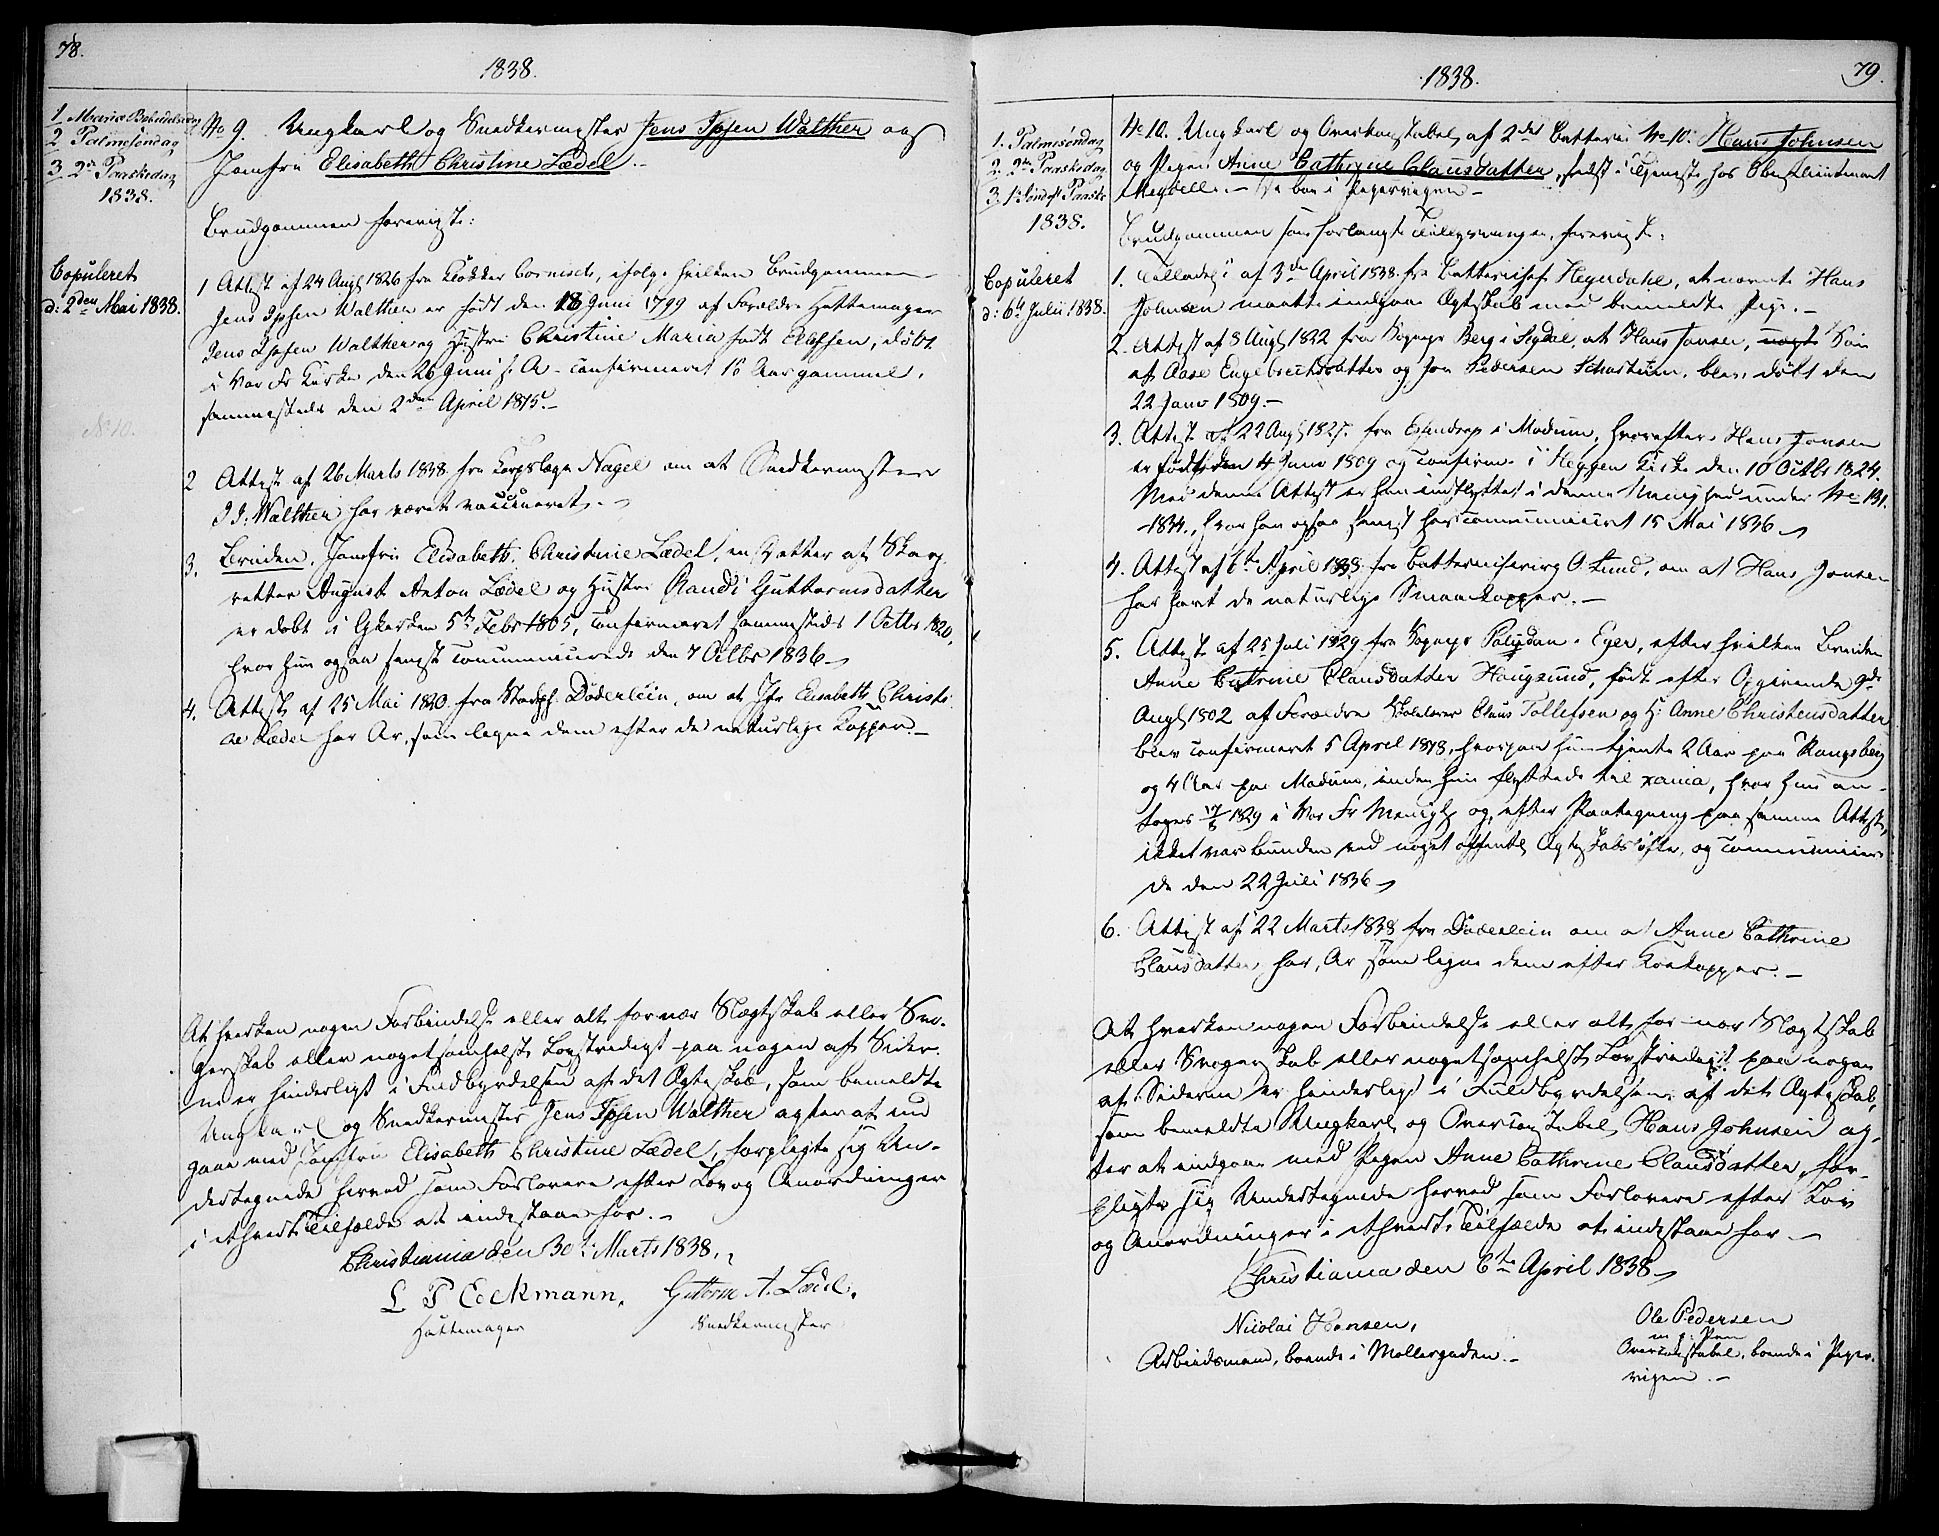 78.
1838.
1. Mariæ Bebudelsesdag
2. Palmesöndag
3. 2den Paaskedag
1838.
Copuleret
d: 2den Mai 1838.
No 10.
No 9. Ungkarl og Snedkermester Jens Ipsen Walther og
Jomfru Elisabeth Christine Lædel.
Brudgommen foreviste:
1 Attest af 24 Aug 1826 fra Klokker Cornisch, ifølge hvilken Brudgommen
Jens Ipsen Walther er født den 18 Juni 1799 af Forældre Hattemager
Jens Ipsen Walther og Hustru Christine Maria født Olefsen, döbt
i Vor Fr Kirke den 26 Juni s. A. confirmeret 16 Aar gammel,
sammesteds den 2den April 1815.
2 Attest af 26 Marts 1838 fra Korpslæge Nagel om at Snedkermester
J. I. Walther har været vaccineret.
3. Bruden, Jomfru Elisabeth Christine Lædel, en Datter af Skarp-
retter August Anton Lædel og Hustru Randi Guttormsdatter
er døbt i Gkirken 5te Febr 1805, confirmeret sammesteds 1 Octbr 1820,
hvor hun ogsaa sengst communicerede den 7 Octbr 1836
4. Attest af 25 Mai 1820 fra Stadph. Döderlein, om at Jfr Elisabeth Christi-
ne Lædel har Ar, som ligne dem efter de naturlige Kopper.
At hverken nogen Forbindelse eller alt for nær Slægtskab eller Svo-
gerskab eller nogetsomhelst Lovstridigt paa nogen af Sider-
ne er hinderligt i Fuldbyrdelsen af det Ægteskab, som bemeldte
Ungkarl og Snedkermester Jens Ipsen Walther agter at ind-
gaae med Jomfru Elisabeth Christine Lædel, forpligte sig Un-
dertegnede herved som Forlovere efter Lov og Anordninger
i ethvert Tilfælde at indestaae for.
Christiania den 30te Marts 1838.
L P Eeckmann. Guttorm A. Lædel.
Hattemager Snedkermester
1838.
79.
1. Palmesöndag
2. 2den Paaskedag
3. 1 Sönd. eft Paaske
1838.
Copuleret
d: 6te Julii 1838.
No 10. Ungkarl og Overkonstabel af 2det Batteri No 10. Hans Johnsen
og Pigen Anne Cathrine Clausdatter, sidst i Tjeneste hos Oberstlieutenant
Meydell. De boe i Pipervigen
Brudgommen som forlangte Tillysningen, foreviste:
1. Tilladelse af 3die April 1838 fra Batterichef Heyerdahl, at nævnte Hans
Johnsen maatte indgaae Ægteskab med bemeldte Pige.
2. Attest af 8 Aug 1822 fra Sognepr Berg i Sigdal, at Hans Jonsen, uægte Sön
af Aase Engebrechtsdatter og Jon Pedersen Schartum, blev döbt den
22 Janv 1809.
3. Attest af 22 Aug 1827. fra Essendrop i Modum, hvorefter Hans Jonsen
er født den 4 Janv 1809 og confirm. i Heggen Kirke den 10 Octbr 1824.
Med denne Attest er han indflyttet i denne Menighed under No 191.
1834., hvor han ogsaa senest har communiceret 15 Mai 1836
4. Attest af 6te April 1838 fra Batterichirurg O. Lund, om at Hans Jonsen
har havt de naturlige Smaakopper.
5. Attest af 25 Juli 1829 fra Sognepr Palydan i Eger, efter hvilken Bruden
Anne Cathrine Clausdatter Haugsund, född efter Opgivende 9de
Aug 1802 af Forældre Skolelærer Claus Tollefsen og H: Anne Christensdatter
blev confirmeret 5 April 1818, hvorpaa hun tjente 2 Aar paa Kongsberg
og 4 Aar paa Modum, inden hun flyttede til Xania, hvor hun an-
toges 17/8 1829 i Vor Fr Menigh og, efter Paategning paa samme Attest,
ikke var bunden ved noget offentl Ægteskabslöfte, og communicere-
de den 22 Juli 1836
6. Attest af 22 Marts 1838 fra Döderlein om at Anne Cathrine
Clausdatter har Ar som ligne dem efter Kokopper.
At hverken nogen Forbindelse eller alt for nær Slægtskab
eller Svogerskab eller nogetsomhelst Lovstridigt paa nogen
af Siderne er hinderligt i Fuldbyrdelsen af det Ægteskab,
som bemeldte Ungkarl og Overconstabel Hans Johnsen ag-
ter at indgaae med Pigen Anne Cathrine Clausdatter, for-
pligte sig Undertegnede herved som Forlovere efter Lov
og Anordninger i ethvert Tilfælde at indestaae for.
Christiania den 6te April 1838
Nicolai Hansen,
Arbeidsmand, boende i Møllergaden.
Ole Pedersen
m. p. Pen
Overconstabel, boende i Piper-
vigen.